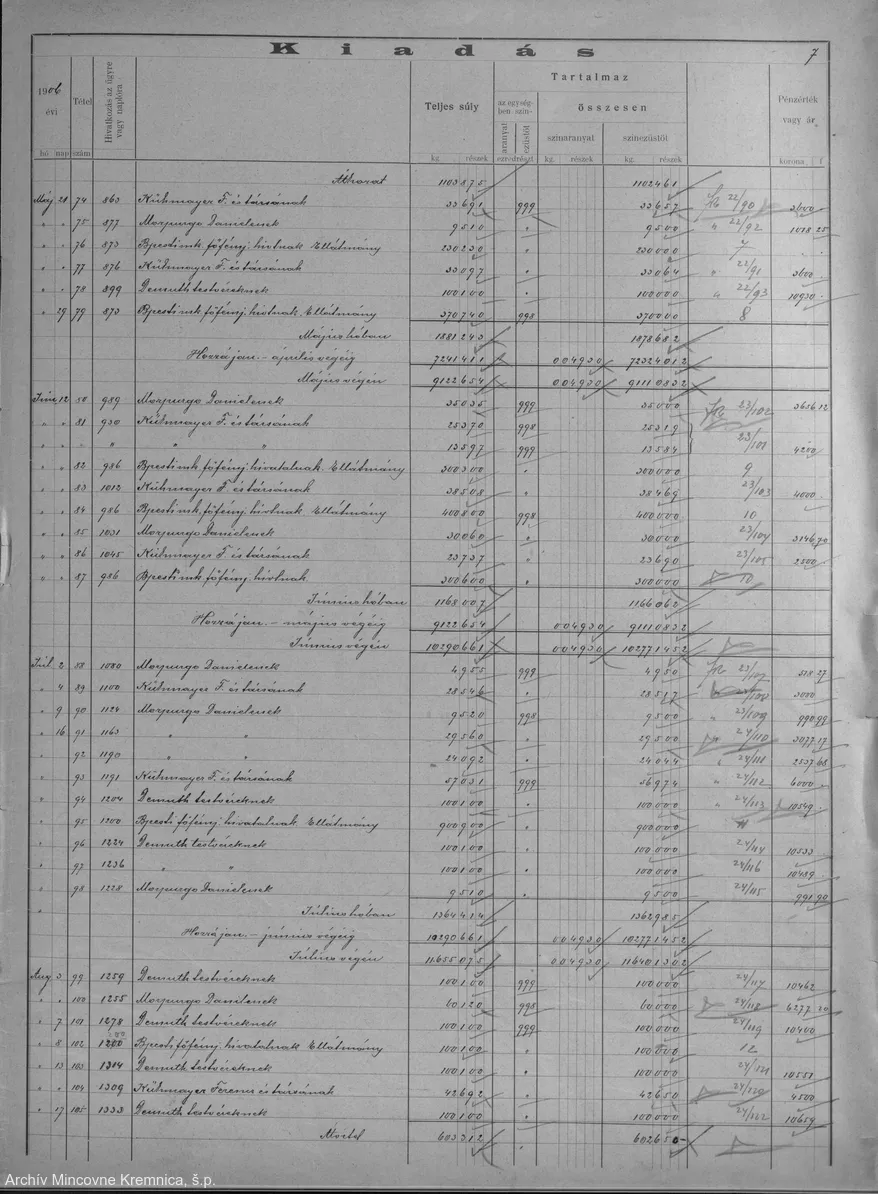 Kiadás
7
1906
évi
Tétel
Hivatkozás az ügyre vagy naplóra
Teljes súly
Tartalmaz
az egység-ben szin-
aranyat
ezüstöt
ezredrészt
összesen
szinaranyat
szinezüstöt
Pénzérték vagy ár
hó nap szám
kg. részek
kg. részek
kg. részek
korona f
Áthozat 1103875 1102461
Máj 28 74 863 Kühmayer F. és társának 33691 999 33657 22/90 3600
" " 75 877 Morpurgo Danielenek 9510 " 9500 " 22/92 1018 25
" " 76 873 Bpesti mk. főfémj. hivtnak Ellátmány 230230 " 230000 7
" " 77 876 Kühmayer F. és társának 33097 " 33064 " 22/91 3600
" " 78 899 Demuth testvéreknek 100100 " 100000 " 22/93 10930
" 29 79 873 Bpesti mk. főfémj. hivtnak Ellátmány 370740 998 370000 8
Május hóban 1881243 1878682
Hozzá jan. – április végéig 7241411 004930 7232 4012
Május végén 9122654 004930 9111 0832
Június 12 80 989 Morpurgo Danielenek 35035 999 35000 23/102 3636 12
" " 81 930 Kühmayer F. és társának 25370 998 25319
" " " " " 13597 999 13584 23/101 4200
" " 82 986 Bpesti mk. főfémj. hivatalnak Ellátmány 300300 " 300000 9
" " 83 1012 Kühmayer F. és társának 38508 " 38469 23/103 4000
" " 84 986 Bpesti mk. főfémj. hivtnak Ellátmány 400800 998 400000 10
" " 85 1031 Morpurgo Danielenek 30060 " 30000 23/104 3146 70
" " 86 1045 Kühmayer F. és társának 23737 " 23690 23/105 2500
" " 87 986 Bpesti mk. főfémj. hivtnak 300600 " 300000 10
Június hóban 1168007 1166062
Hozzá jan. – május végéig 9122654 004930 9111 0832
Június végén 10290661 004930 10277 1452
Júl. 2 88 1080 Morpurgo Danielenek 4955 999 4950 23/107 518 27
" 4 89 1100 Kühmayer F. és társának 28546 " 28517 23/108 3000
" 9 90 1124 Morpurgo Danielenek 9520 998 9500 " 23/109 990 99
" 16 91 1163 " " 29560 " 29500 24/110 3077 17
" 92 1190 " " 24092 " 24044 24/111 2537 68
" 93 1191 Kühmayer F. és társának 57031 999 56974 " 24/112 6000
" 94 1204 Demuth testvéreknek 100100 " 100000 " 24/113 10549
" 95 1200 Bpesti főfémj. hivatalnak Ellátmány 900900 " 900000 11
" 96 1224 Demuth testvéreknek 100100 " 100000 24/114 10533
" 97 1236 " " 100100 " 100000 24/116 10489
" 98 1228 Morpurgo Danielenek 9510 " 9500 24/115 991 90
Július hóban 1364414 1362985
Hozzá jan. – június végéig 10290661 004930 10277 1452
Július végén 11655075 004930 11640 1302
Aug 3 99 1259 Demuth testvéreknek 100100 999 100000 24/117 10462
" " 100 1255 Morpurgo Danielenek 60120 998 60000 24/118 6277 20
" 7 101 1278 Demuth testvéreknek 100100 999 100000 24/119 10400
" 8 102 1200 Bpesti főfémj. hivatalnak Ellátmány 100100 " 100000 12
" 13 103 1314 Demuth testvéreknek 100100 " 100000 24/121 10551
" " 104 1309 Kühmayer Ferencz és társának 42692 " 42650 24/120 4500
" 17 105 1333 Demuth testvéreknek 100100 " 100000 24/122 10659
Átvitel 603312 602650
Archív Mincovne Kremnica, š.p.